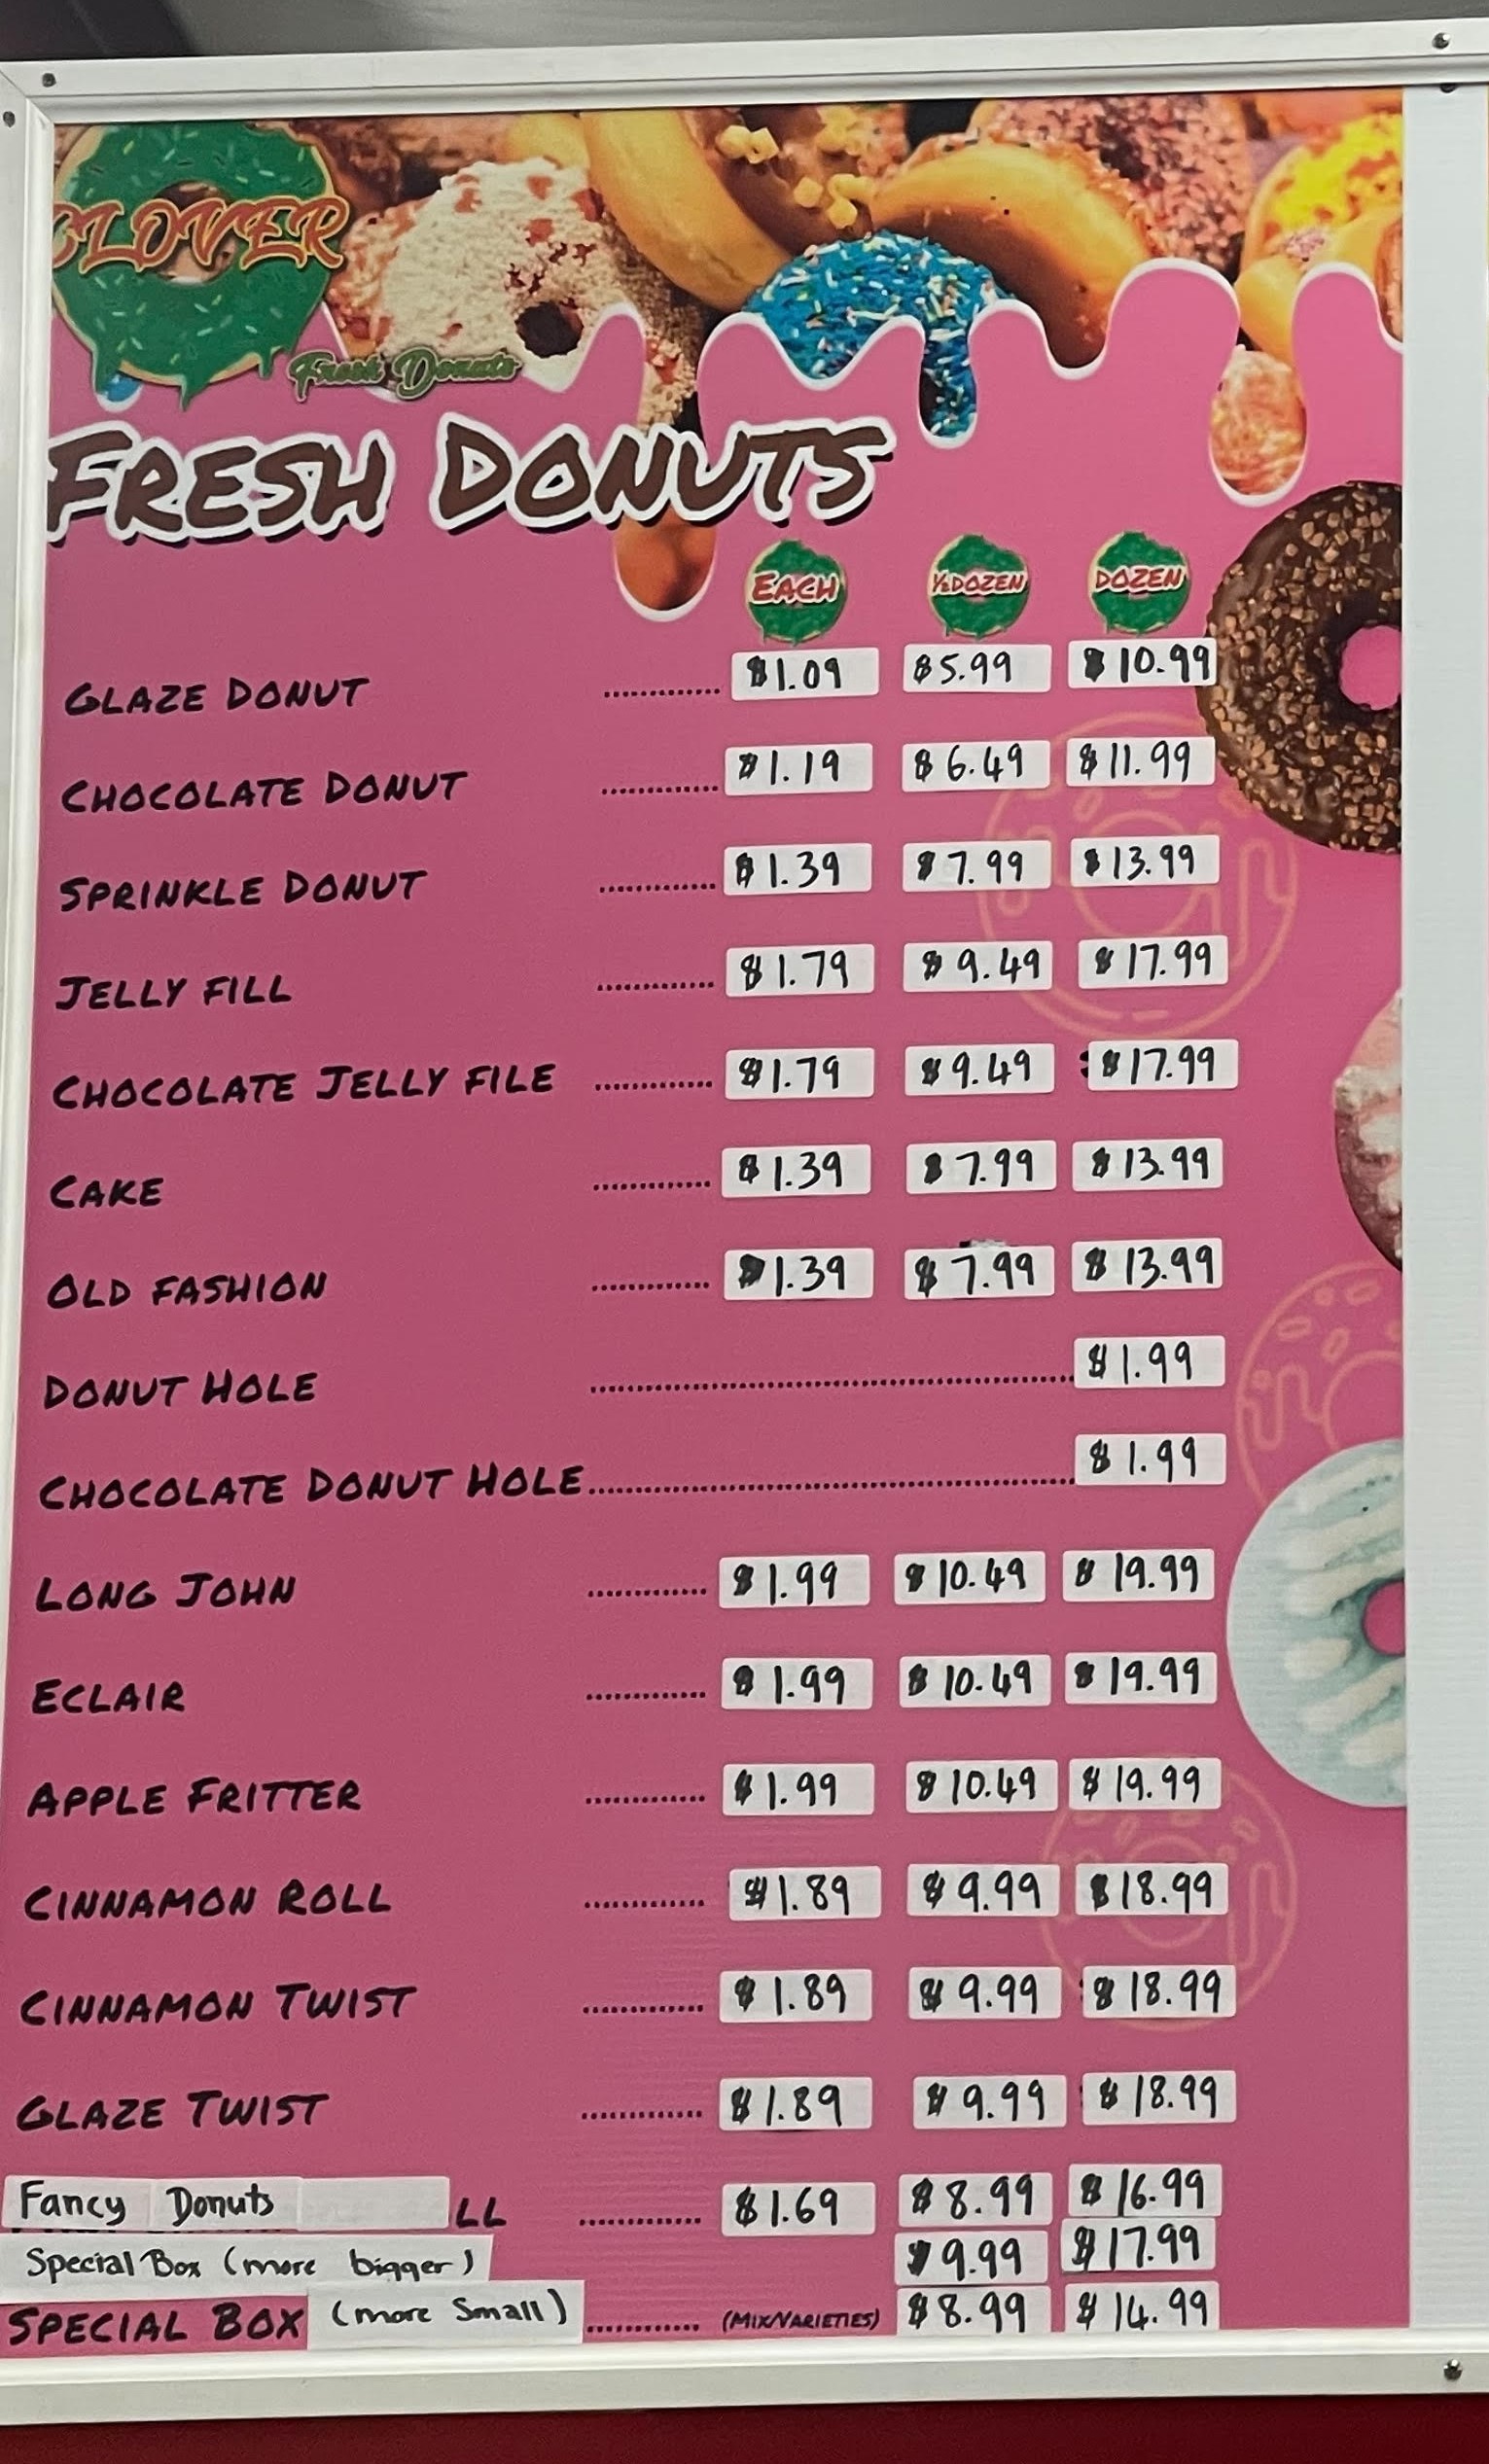 CLOVER
Fresh Donuts
FRESH DONUTS
EACH ½DOZEN DOZEN
GLAZE DONUT ............ $1.09 $5.99 $10.99
CHOCOLATE DONUT ............ $1.19 $6.49 $11.99
SPRINKLE DONUT ............ $1.39 $7.99 $13.99
JELLY FILL ............ $1.79 $9.49 $17.99
CHOCOLATE JELLY FILE ............ $1.79 $9.49 $17.99
CAKE ............ $1.39 $7.99 $13.99
OLD FASHION ............ $1.39 $7.99 $13.99
DONUT HOLE ............ $1.99
CHOCOLATE DONUT HOLE ............ $1.99
LONG JOHN ............ $1.99 $10.49 $19.99
ECLAIR ............ $1.99 $10.49 $19.99
APPLE FRITTER ............ $1.99 $10.49 $19.99
CINNAMON ROLL ............ $1.89 $9.99 $18.99
CINNAMON TWIST ............ $1.89 $9.99 $18.99
GLAZE TWIST ............ $1.89 $9.99 $18.99
Fancy Donuts LL ............ $1.69 $8.99 $16.99
Special Box (more bigger) $9.99 $17.99
SPECIAL BOX (more Small) ............ (MIX/VARIETIES) $8.99 $14.99